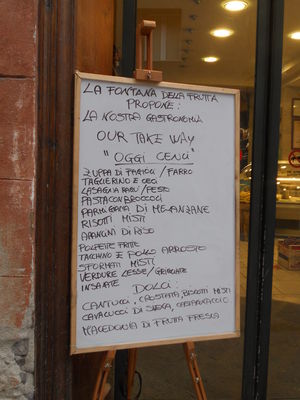 LA FONTANA DELLA FRUTTA
PROPONE:
LA NOSTRA GASTRONOMIA
OUR TAKE WAY
"OGGI CENCI"
ZUPPA DI FAGIOLI/FARRO
TAGLIERINO E CECI
LASAGNIA RAGU/PESTO
PASTA CON BROCCOLI
PARMIGIANA DI MELANZANE
RISOTTI MISTI
ARANCINI DI RISO
POLPETTE FRITTE
TACCHINO E POLLO ARROSTO
SFORMATI MISTI
VERDURE LESSE/GRIGLIATE
INSALATE DOLCI:
CANTUCCI, CROSTATA, BISCOTTI MISTI
CAVALLUCCI DI SIENA, CASTAGNACCIO
MACEDONIA DI FRUTTA FRESCA